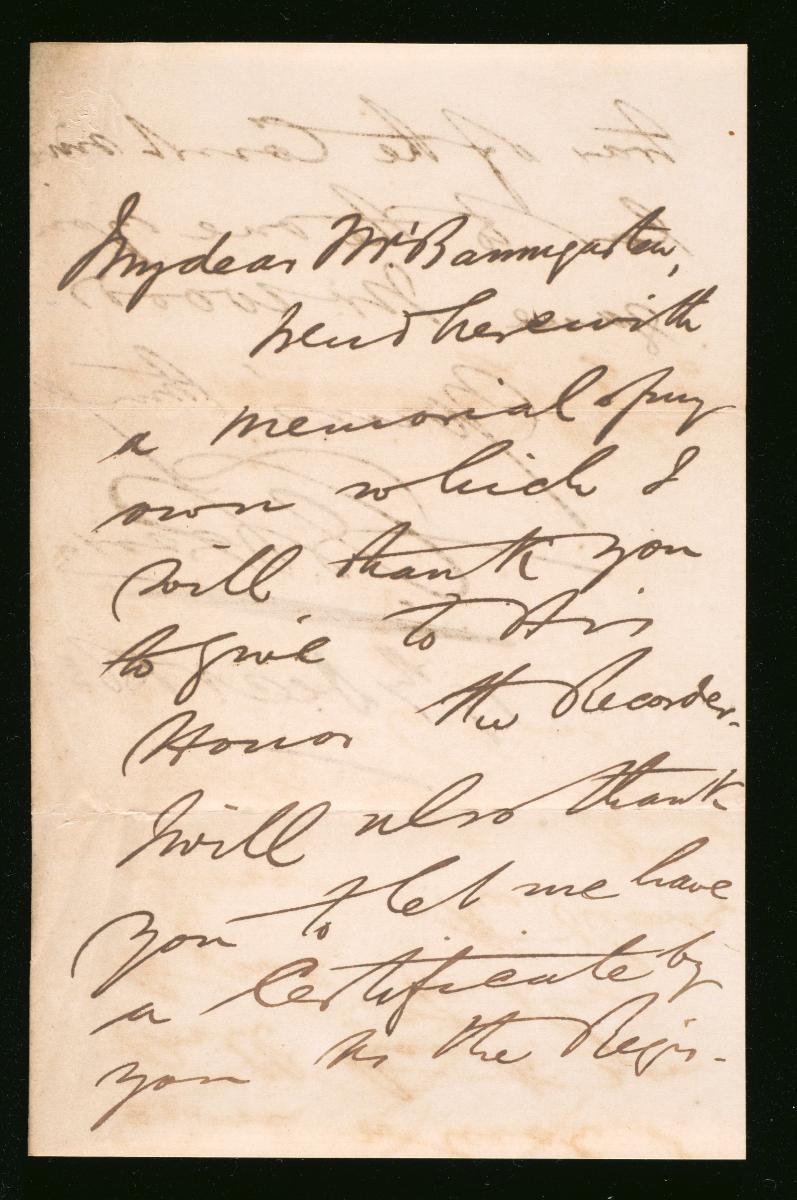 My dear Mr Baumgarten,
I send herewith
a memorial of my
own which I
will thank you
to give to His
Honor the Recorder.
I will also thank
you to let me have
a Certificate by
you as the Regis-